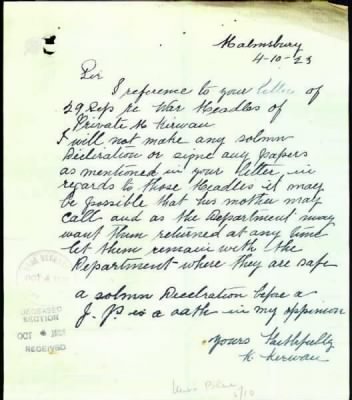 Malmsbury
4-10-23
Sir
I reference to your letter of
29 Sep re War Meadles of
Private M Kirwan
I will not make any solmn
Decleration or signe any papers
as mentioned in your letter in
regards to those Meadles it may
be possible that his mother may
call and as the Department may
want them returned at any time
let them remain with the
Department where they are safe
a solmn Decleration before a
J. P. is a oath in my oppinion
yours Faithfully
K. Kirwan
DECEASED
SECTION
OCT 1923
RECEIVED